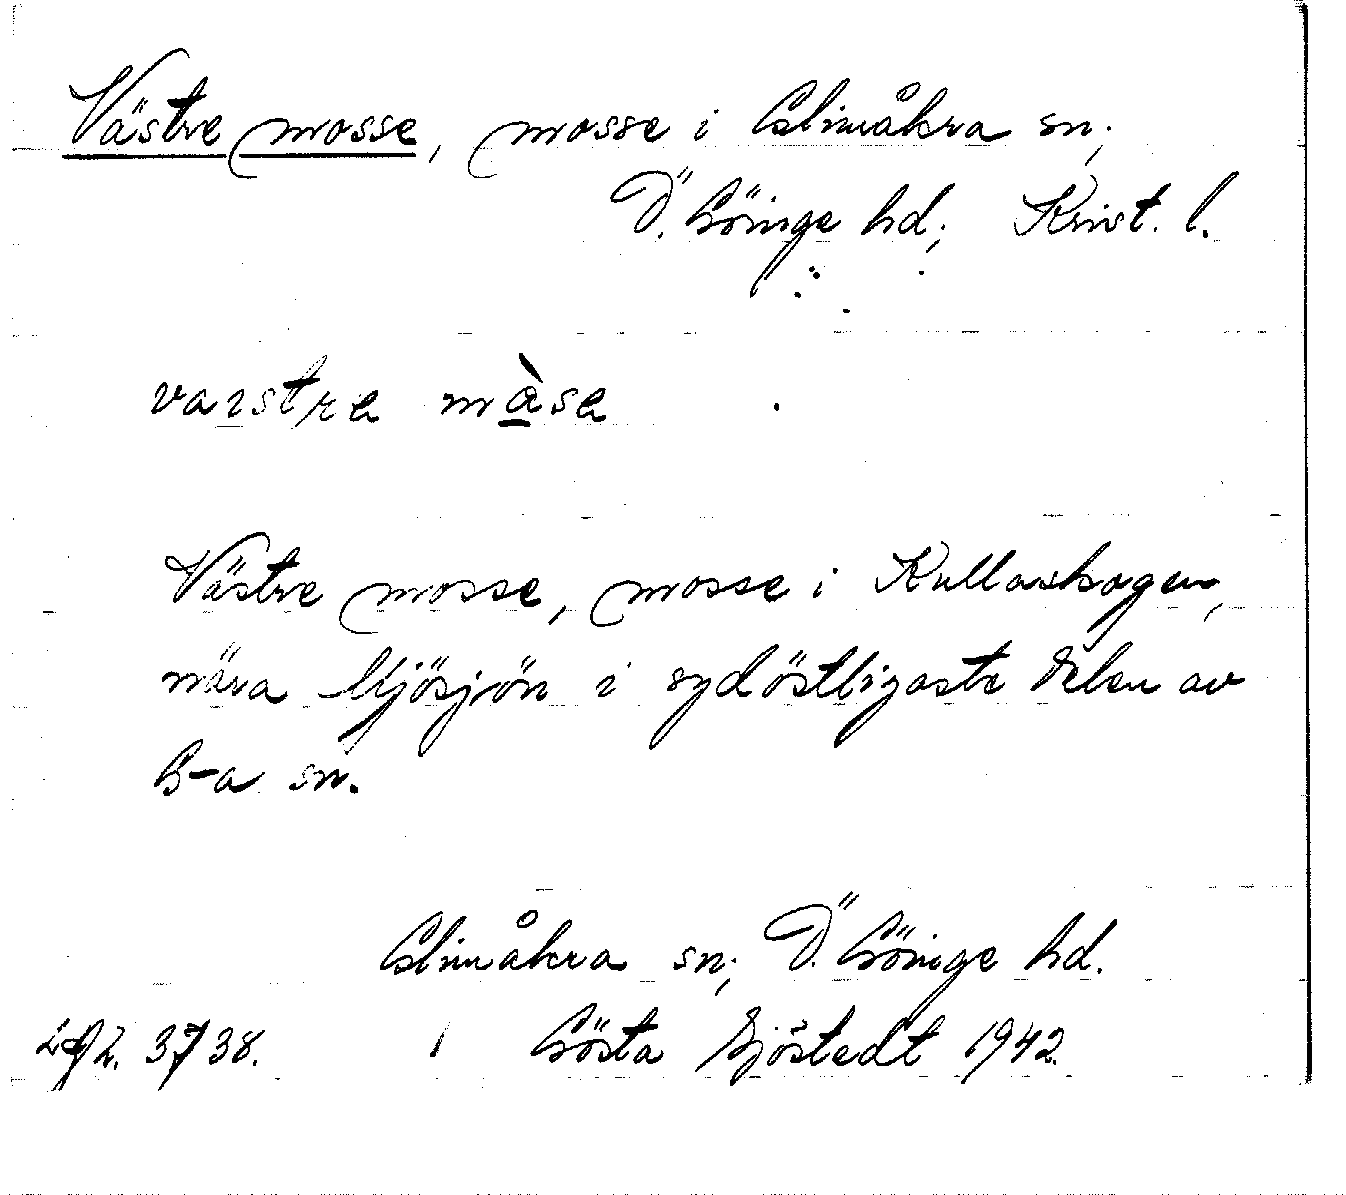 Västre mosse, mosse i Glimåkra sn;
Ö. Göinge hd; Krist. l.
vaistre màse
Västre mosse, mosse i Kullaskogen,
nära Mjösjön i sydöstligaste delen av
G-a sn.
Glimåkra sn; Ö. Göinge hd.
3738. Gösta Sjöstedt 1942.